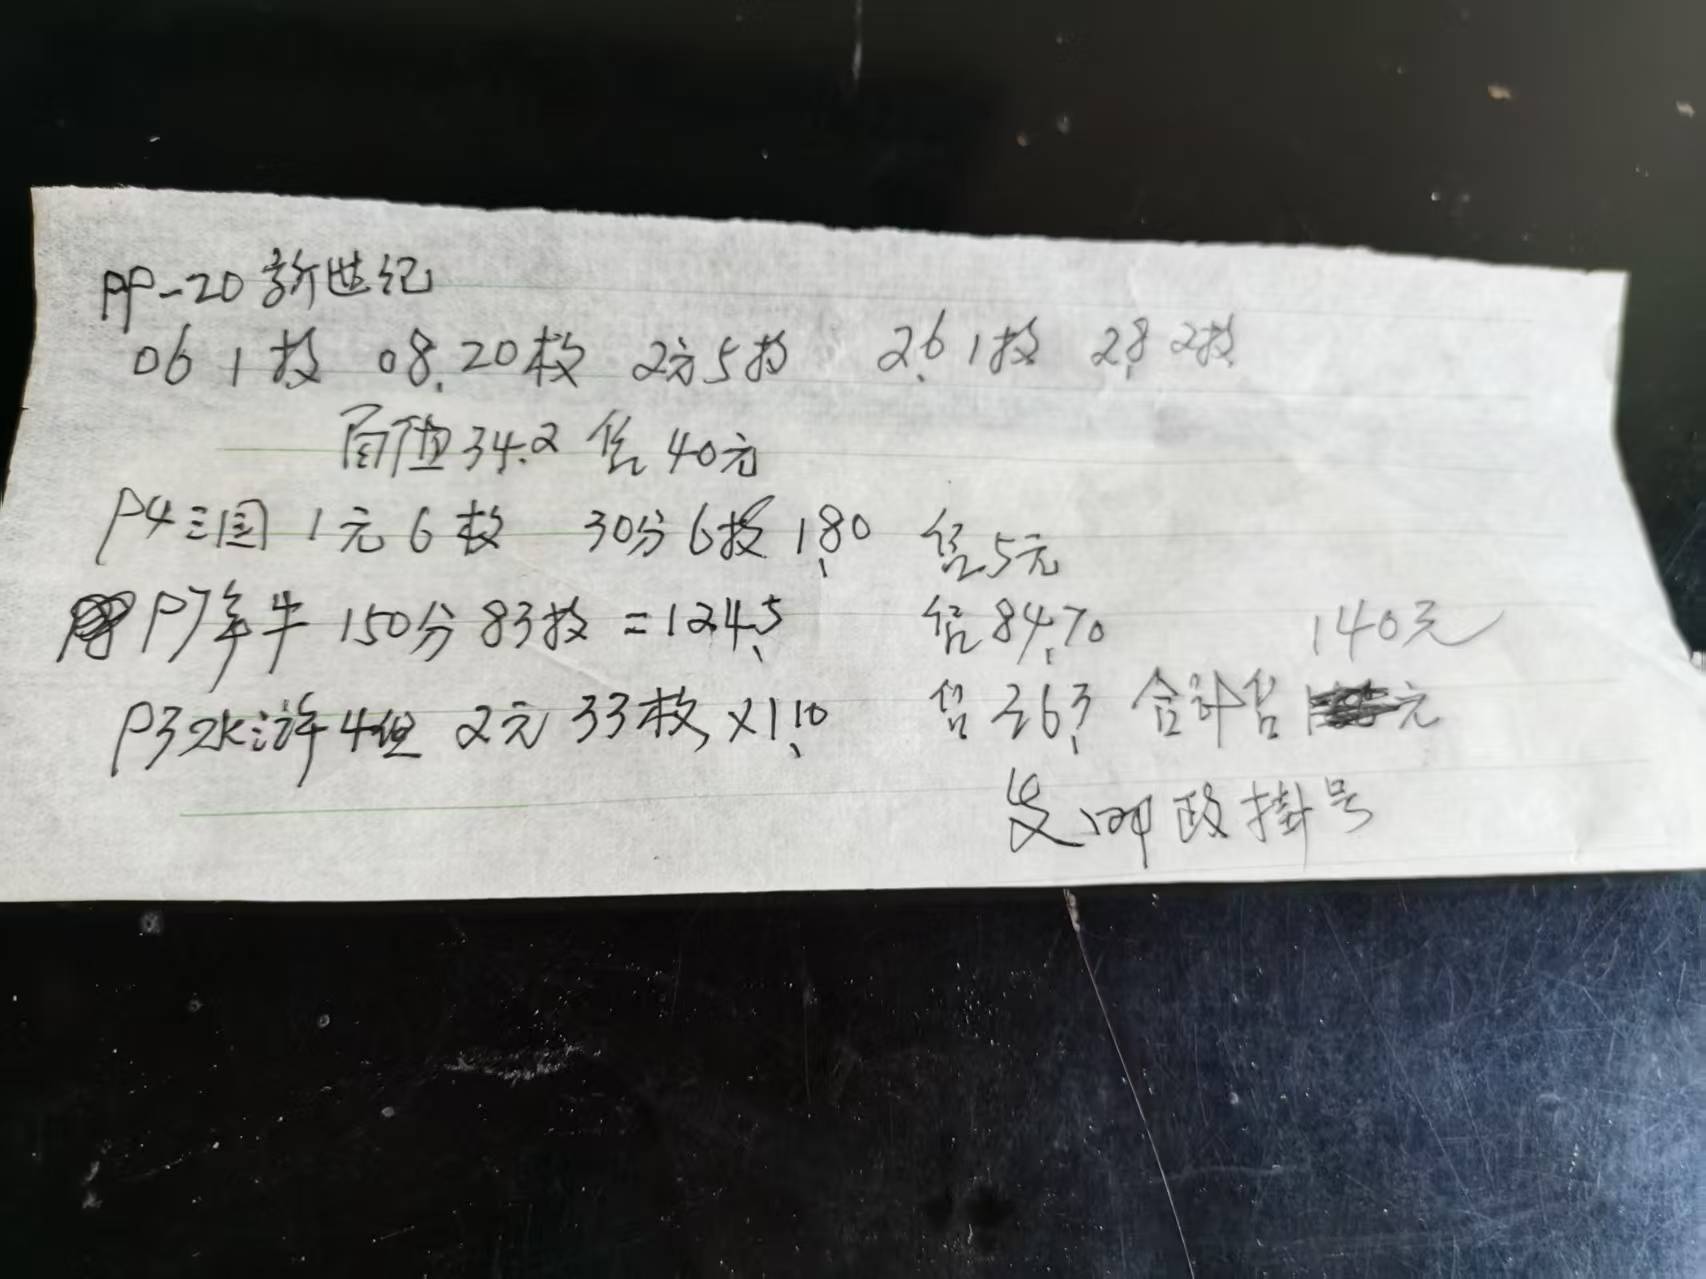 PP-20新世纪
06 1枚 08.20枚 2元5枚 2.6 1枚 2.8 2枚
面值34.2 售40元
P4三国 1元6枚 30分6枚 1.80 售5元
P7年牛 150分83枚=124.5 售84.70 140元
P3水浒4组 2元33枚×1.10 售363 合计售 元
发邮政掛号